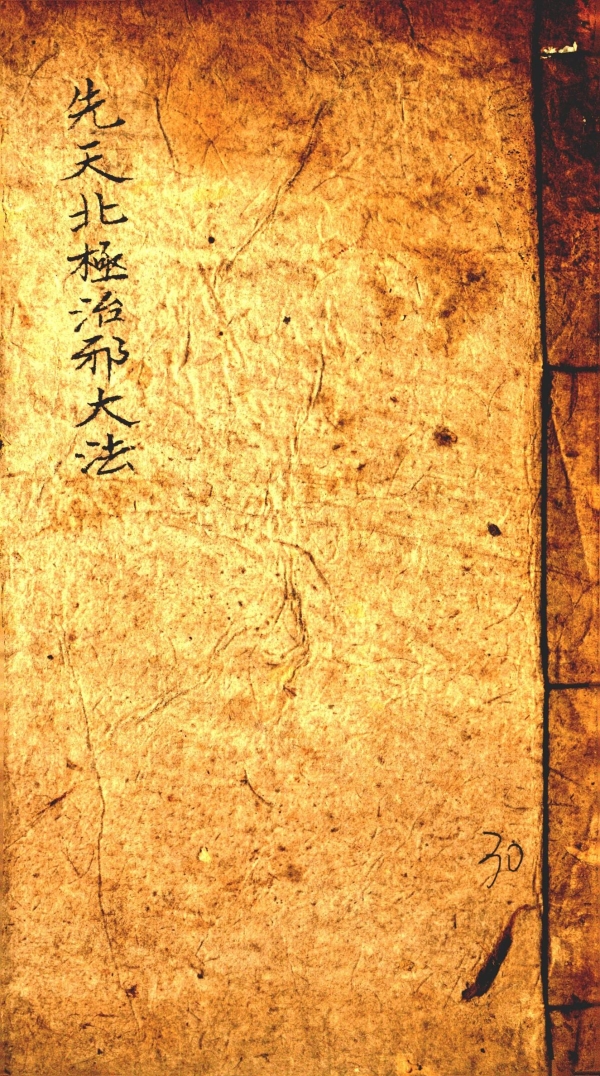 先天北極治邪大法
30